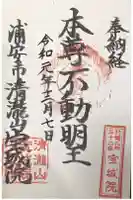 奉納経
本尊不動明王
令和元年十二月七日
浦安市清瀧山宝城院
清瀧山
宝城院